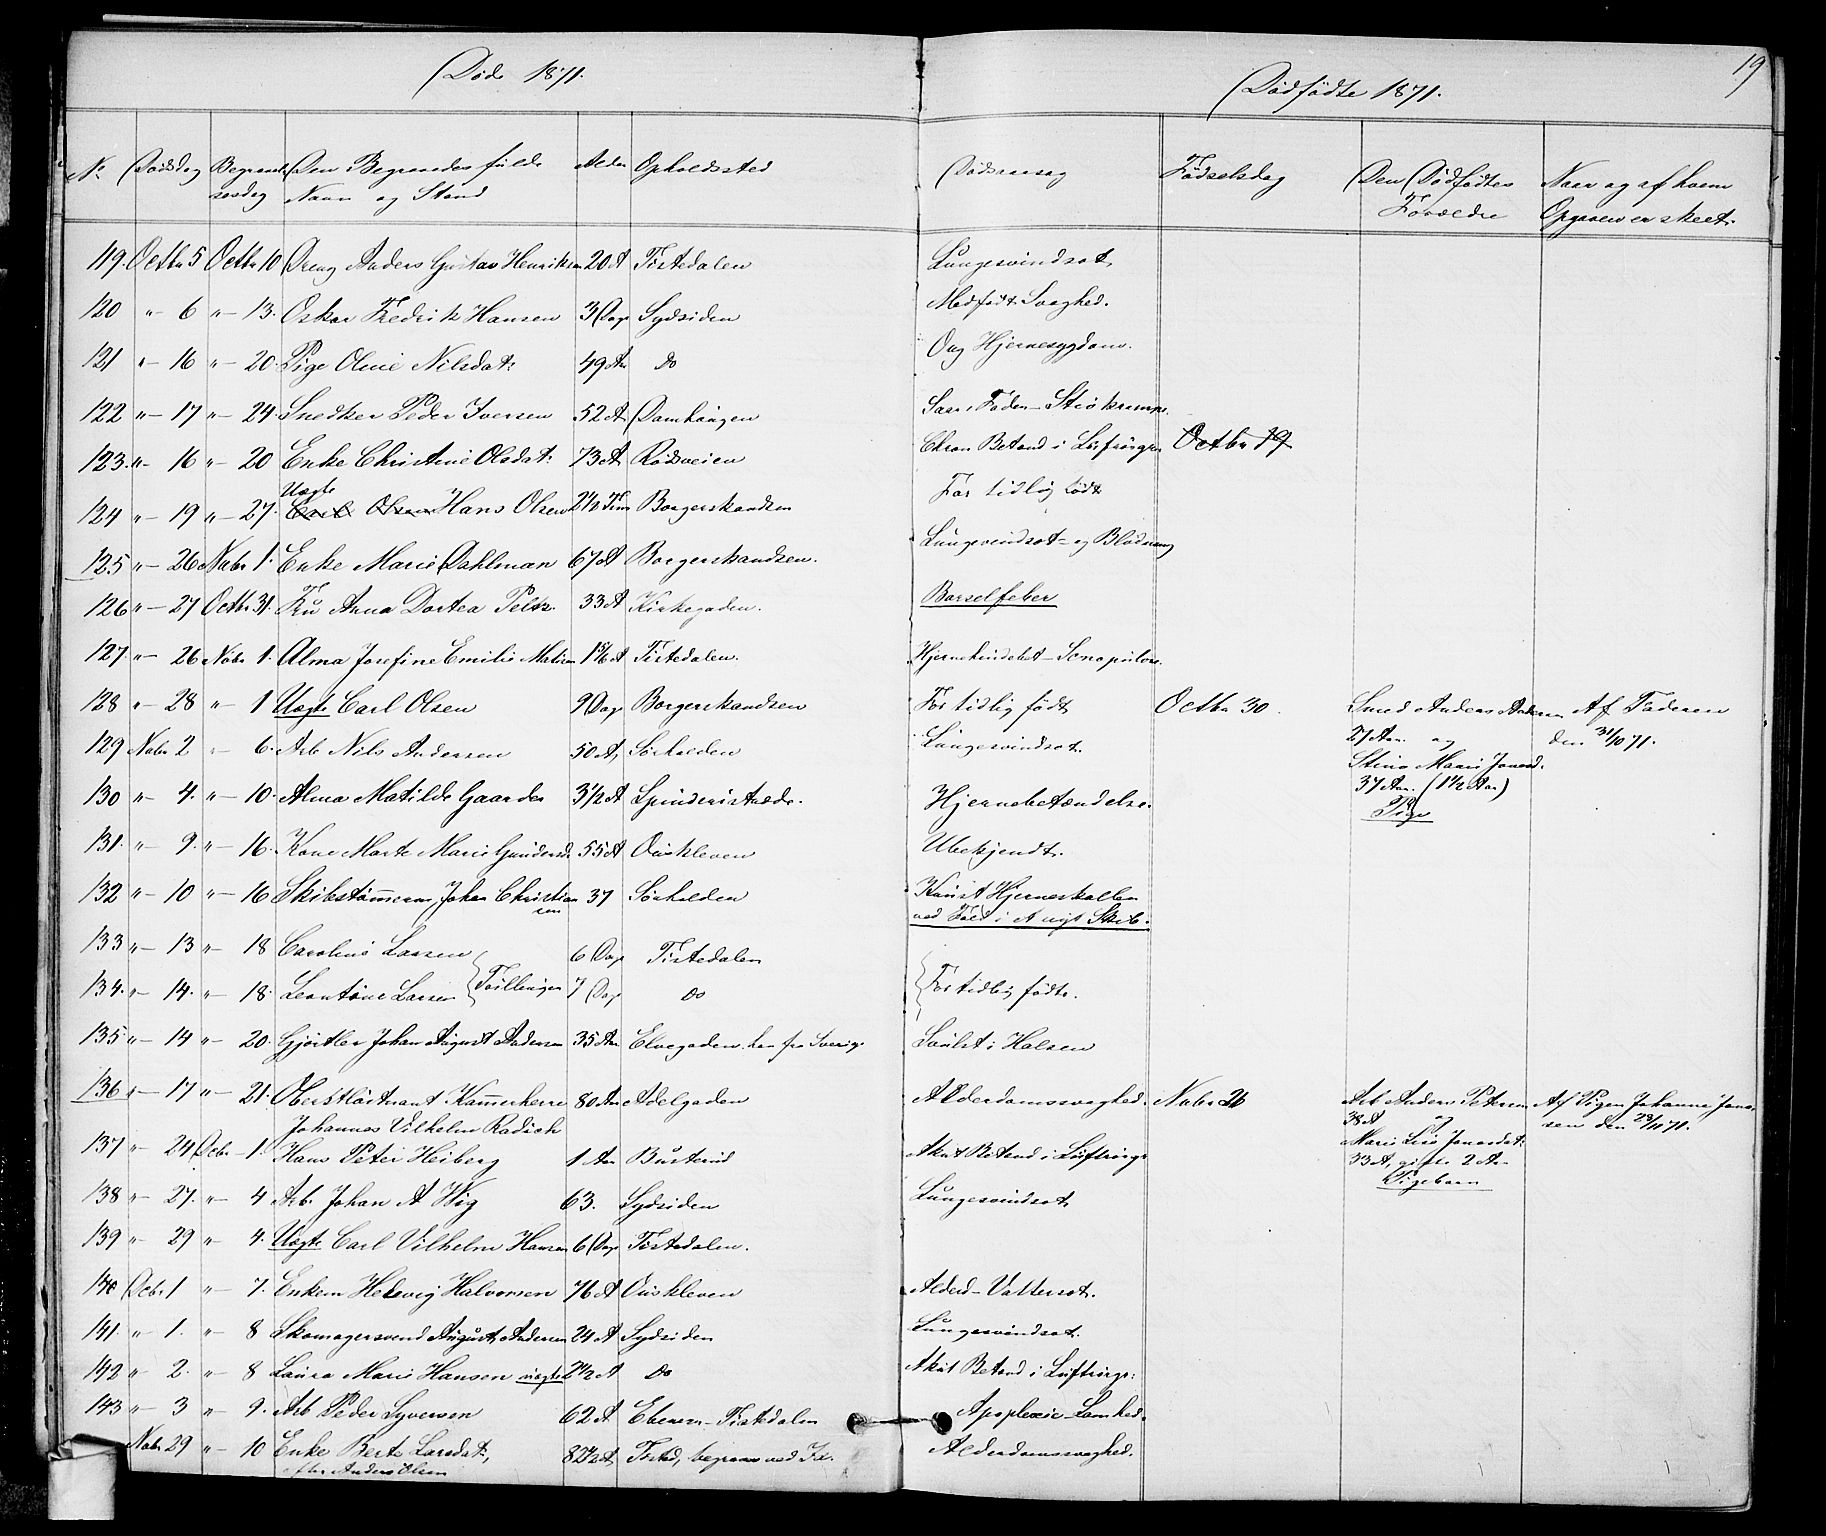 Døde 1871.
Dødfødte 1871.
19
No Dødsdag Begravelsesdag Den Begravedes fulde Navn og Stand Alder Opholdssted Dødsaarsag Fødselsdag Den Dødfødtes Forældre Naar og af hvem Opgaven er skeet.
119. Octbr 5 Octbr 10 Dreng Anders Gustav Henriksen 20 A Tistedalen Lungesvindsot
120 " 6 " 13. Oskar Fredrik Hansen 3 Dage Sydsiden Medfødt Svaghed.
121 " 16 " 20. Pige Oline Nilsdat: 49 Aar Do Ong Hjernesygdom.
122 " 17 " 24. Snedker Peder Iversen 52 A Damhaugen Saar i Foden - Stivkrampe.
123. " 16 " 20 Enke Christine Olsdat: 73 A Rødsveien Chron Betænd i Luftrørgr Octbr 19
124 " 19 " 27. Uægte Carl Olsen Hans Olsen 2 1/2 Time Borgerskandsen For tidlig født
125 " 26 Novbr 1. Enke Marie Dahlman 67 A Borgerskandsen. Lungesvindsot - og Blødning
126 " 27 Octbr 31. Fru Anna Dortea Peltz. 33 A Kirkegaden. Barselfeber
127. " 26 Novbr 1. Alma Josefine Emilie Matisen 1 5/6 A Tistedalen.
128 " 28 " 1 Uægte Carl Olsen 9 Dage Borgerskandsen For tidlig født Octbr 30. Smed Anders Andersen Af Faderen
27 Aar. og den 31/10 71.
129 Novbr 2. " 6. Arb Nils Andersen 50 A. Sørhalden Lungesvindsot.
Stine Marie Jonasd.
37 Aar. (1 1/2 Aar)
Pige
130 " 4. " 10. Alma Matilde Gaarder 3 1/2 A Spinderistrædet. Hjernebetændelse.
131. " 9. " 16. Kone Marte Marie Gundersd 55 A Ouskleven Ubekjendt.
132 " 10 " 16 Skibstømmerm, Johan Christiansen 37 Sørhalden Knust Hjerneskallen
ved Fald i et nyt Skib.
133 " 13 " 18 Caroline Larsen 6 Dage Tistedalen
134. " 14. " 18. Leontine Larsen Tvillinger 7 Dage Do For tidlig fødte.
135 " 14 " 20. Gjørtler Johan August Andersen 35 Aar Elvegaden, han fra Sverig. Svulst i Halsen
136 " 17 " 21. Oberstløitnant Kammerherre 80 Aar Adelgaden Alderdomssvaghed. Novbr 26 Arb Anders Petersen Af Pigen Johanne Jonas-
Johannes Vilhelm Radich 38 A og sen den 28/11 71.
137 " 24 Dcbr 1. Hans Peter Heiberg 1 Aar Busterud Akut Betænd i Luftrørgr Marie Lise Jonasdat:
33 A, gifte 2 Aar
Pigebarn
138 " 27. " 4 Arb. Johan A Wig 63. Sydsiden Lungesvindsot
139 " 29 " 4. Uægte Carl Vilhelm Hansen 6 Dage Tistedalen.
140 Dcbr 1 " 7. Enkem Helevig Halvorsen 76 A Ouskleven Alderd - Vattersot.
141. " 1. " 8 Skomagersvend August Andersen 24 A Sydsiden Lungesvindsot.
142 " 2. " 8 Laura Marie Hansen uægte 2 1/2 A Do Akut Betænd i Luftrørgr:
143 " 3 " 9. Arb Peder Syversen 62 A Ebenezer - Tistedalen Apoplexie - Lamhed.
Novbr 29 " 10 Enke Berte Larsdat:, 82 1/2 A Tisted, begraves ved Fr. Alderdomssvaghed.
efter Anders Olsen